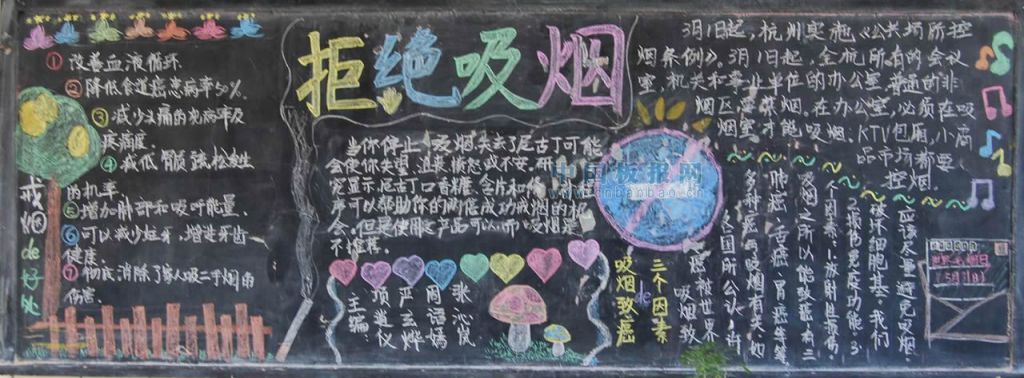 拒绝吸烟
戒烟de好处
①改善血液循环
②降低食道癌患病率50%.
③减少头痛的发病率及
疾病度.
④减低骨骼强松发生
的机率.
⑤增加肺部和吸呼能量.
⑥可以减少蛀牙,增进牙齿
健康.
⑦彻底消除了家人吸二手烟的
伤害.
当你停止吸烟失去了尼古丁可能
会使你失望 沮丧 愤怒或不安.研
究显示,尼古丁口香糖 含片和
声可以帮助你的两倍成功戒烟的机
会.但是使用
不推荐.
主编:
项道仪
严云烨
周语嫣
张沁岚
3月1日起,杭州实施《公共场所控
烟条例》。3月1日起,全杭所有的会议
室,机关和事业单位的办公室,普通的非
烟区要禁烟.在办公室,必须在吸
烟室才能吸烟;KTV包厢,小商
品市场都要
控烟.
三个因素
de
吸烟致癌
吸烟致
癌被世界
各国所公认,有
多种癌与吸烟有关,如
肺癌,舌癌,胃癌等等
吸烟之所以能致癌有三
个因素:1.放射性损伤
2.损伤免疫功能 3.
破坏细胞基.我们
应该尽量避免吸烟.
世界无烟日
5月31日
中国板报网
www.banbao.cn